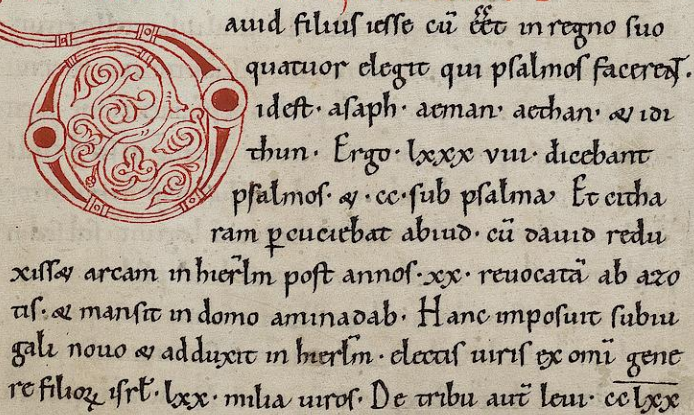 David filius iesse cū eēt in regno suo
quatuor elegit qui psalmos facerent.
idest· asaph· aeman· aethan· & idi
thun· Ergo· lxxx viii· dicebant
psalmos· & ·cc· sub psalma· Et citha
ram ꝑcuciebat abiud· cū dauid redu
xiss& arcam in hierłm post annos ·xx· reuocatā ab azo
tis· & mansit in domo aminadab· Hanc imposuit subiu
gali nouo & adduxit in hierłm· electis uiris ex omī gene
re filioꝝ isrł· lxx· milia uiros. De tribu aut̄ leui· cclxx